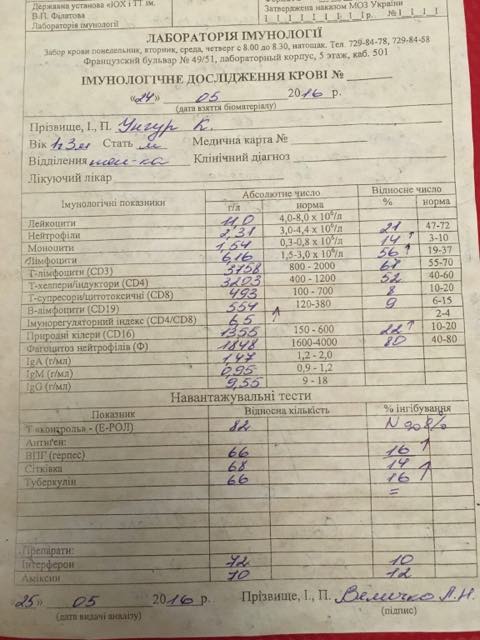 Державна установа «ІОХ і ТТ ім.
В.П. Філатова
Лабораторія імунології
Затверджена наказом МОЗ України
ЛАБОРАТОРІЯ ІМУНОЛОГІЇ
Забор крови понедельник, вторник, среда, четверг с 8.00 до 8.30, натощак. Тел. 729-84-78, 729-84-58
Французский бульвар № 49/51, лабораторный корпус, 5 этаж, каб. 501
ІМУНОЛОГІЧНЕ ДОСЛІДЖЕННЯ КРОВІ №
«24» 05 2016 р.
(дата взяття біоматеріалу)
Прізвище, І., П. Унгур К.
Вік 1г3м Стать м Медична карта №
Відділення пол-ка Клінічний діагноз
Лікуючий лікар
Імунологічні показники Абсолютне число Відносне число
г/л норма % норма
Лейкоцити 11,0 4,0-8,0 x 10⁶/л
Нейтрофіли 2,31 3,0-4,4 x 10⁶/л 21 47-72
Моноцити 1,54 0,3-0,8 x 10⁶/л 14 ↑ 3-10
Лімфоцити 6,16 1,5-3,0 x 10⁶/л 56 ↑ 19-37
Т-лімфоцити (CD3) 3758 800 - 2000 61 55-70
Т-хелпери/індуктори (CD4) 3203 400 - 1200 52 40-60
Т-супресори/цитотоксичні (CD8) 493 100 - 700 8 10-20
В-лімфоцити (CD19) 554 120-380 9 6-15
Імунорегуляторний індекс (CD4/CD8) 6,5 ↑ 2-4
Природні кілери (CD16) 1355 150 - 600 22 ↑ 10-20
Фагоцитоз нейтрофілів (Ф) 1848 1600-4000 80 40-80
IgA (г/мл) 1,47 1,2 - 2,0
IgM (г/мл) 0,95 0,9 - 1,2
IgG (г/мл) 9,55 9 - 18
Навантажувальні тести
Показник Відносна кількість % інгібування
Т «контроль» - (Е-РОЛ) 82 N до 8%
Антиген:
ВПГ (герпес) 66 16 ↑
Сітківка 68 14 ↑
Туберкулін 66 16
=
Препарати:
Інтерферон 72 10
Аміксин 70 12
«25» 05 2016 р. Прізвище, І., П. Величко Л.Н.
(дата видачі аналізу) (підпис)